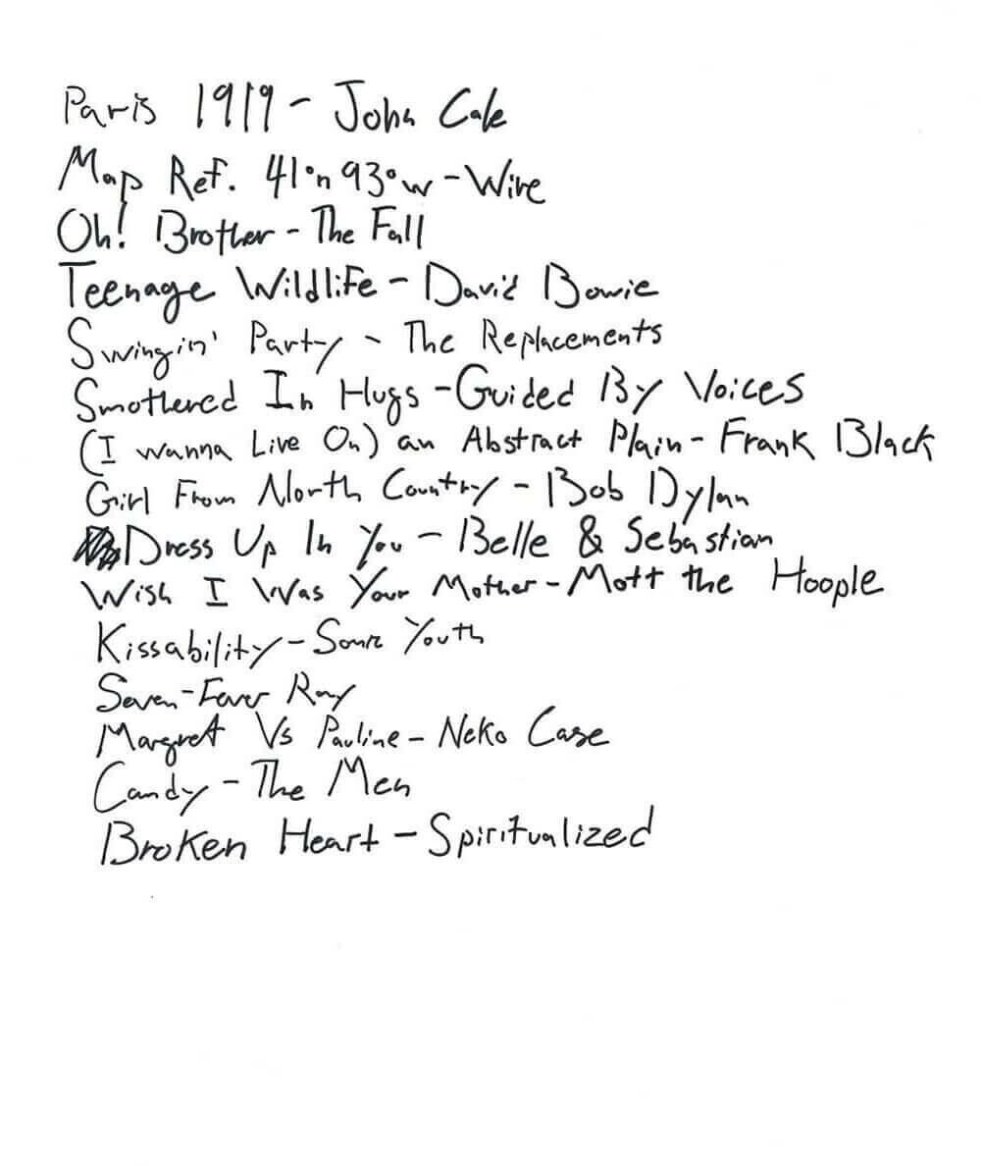 Paris 1919 - John Cale
Map Ref. 41°n 93°w - Wire
Oh! Brother - The Fall
Teenage Wildlife - David Bowie
Swingin' Party - The Replacements
Smothered In Hugs - Guided By Voices
(I wanna Live On) an Abstract Plain - Frank Black
Girl From North Country - Bob Dylan
Dress Up In You - Belle & Sebastian
Wish I Was Your Mother - Mott the Hoople
Kissability - Sonic Youth
Seven - Fever Ray
Margret Vs Pauline - Neko Case
Candy - The Men
Broken Heart - Spiritualized